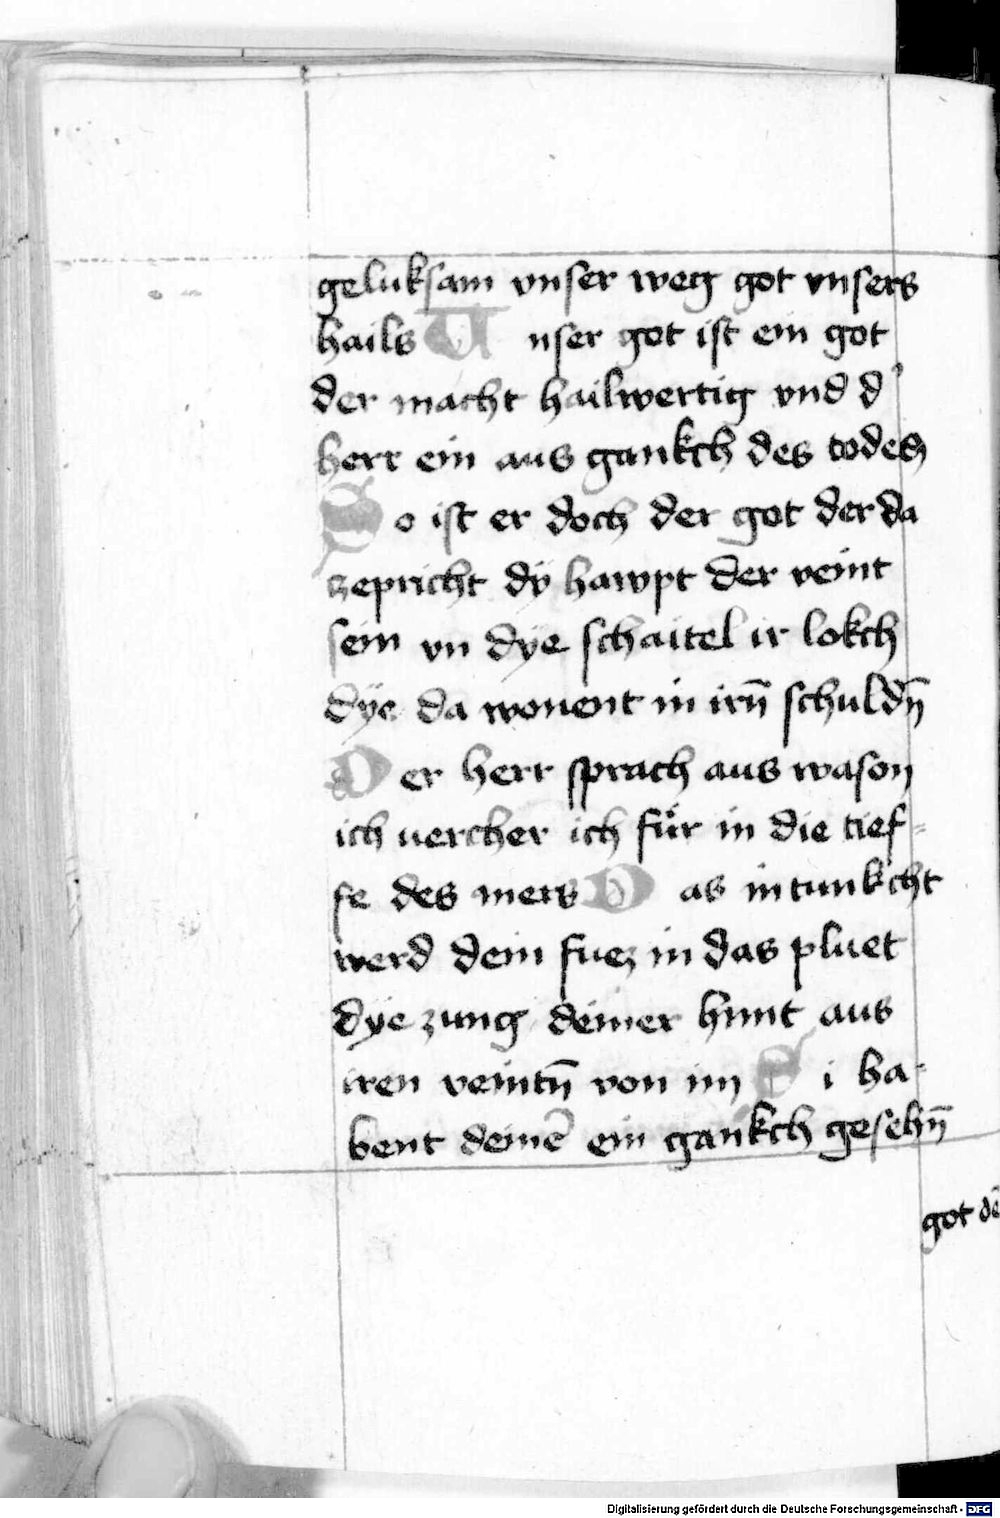 geluksam vnser weg got vnsers
hails Unser got ist ein got
der macht hailwertig vnd d'
herr ein aus gankch des todes
So ist er doch der got der da
zepricht dÿ hawpt der veint
sein vn dÿe schaitel ir lokch
dÿe da wonent in irn̄ schuldn̄
Der herr sprach aus wason
ich vercher ich für in die tief-
fe des mers Das intunkcht
werd dein fuez in das pluet
dÿe zung deiner hunt aus
iren veintn̄ von im Si ha-
bent deinē ein gankch gesehn̄
got dē
Digitalisierung gefördert durch die Deutsche Forschungsgemeinschaft - DFG